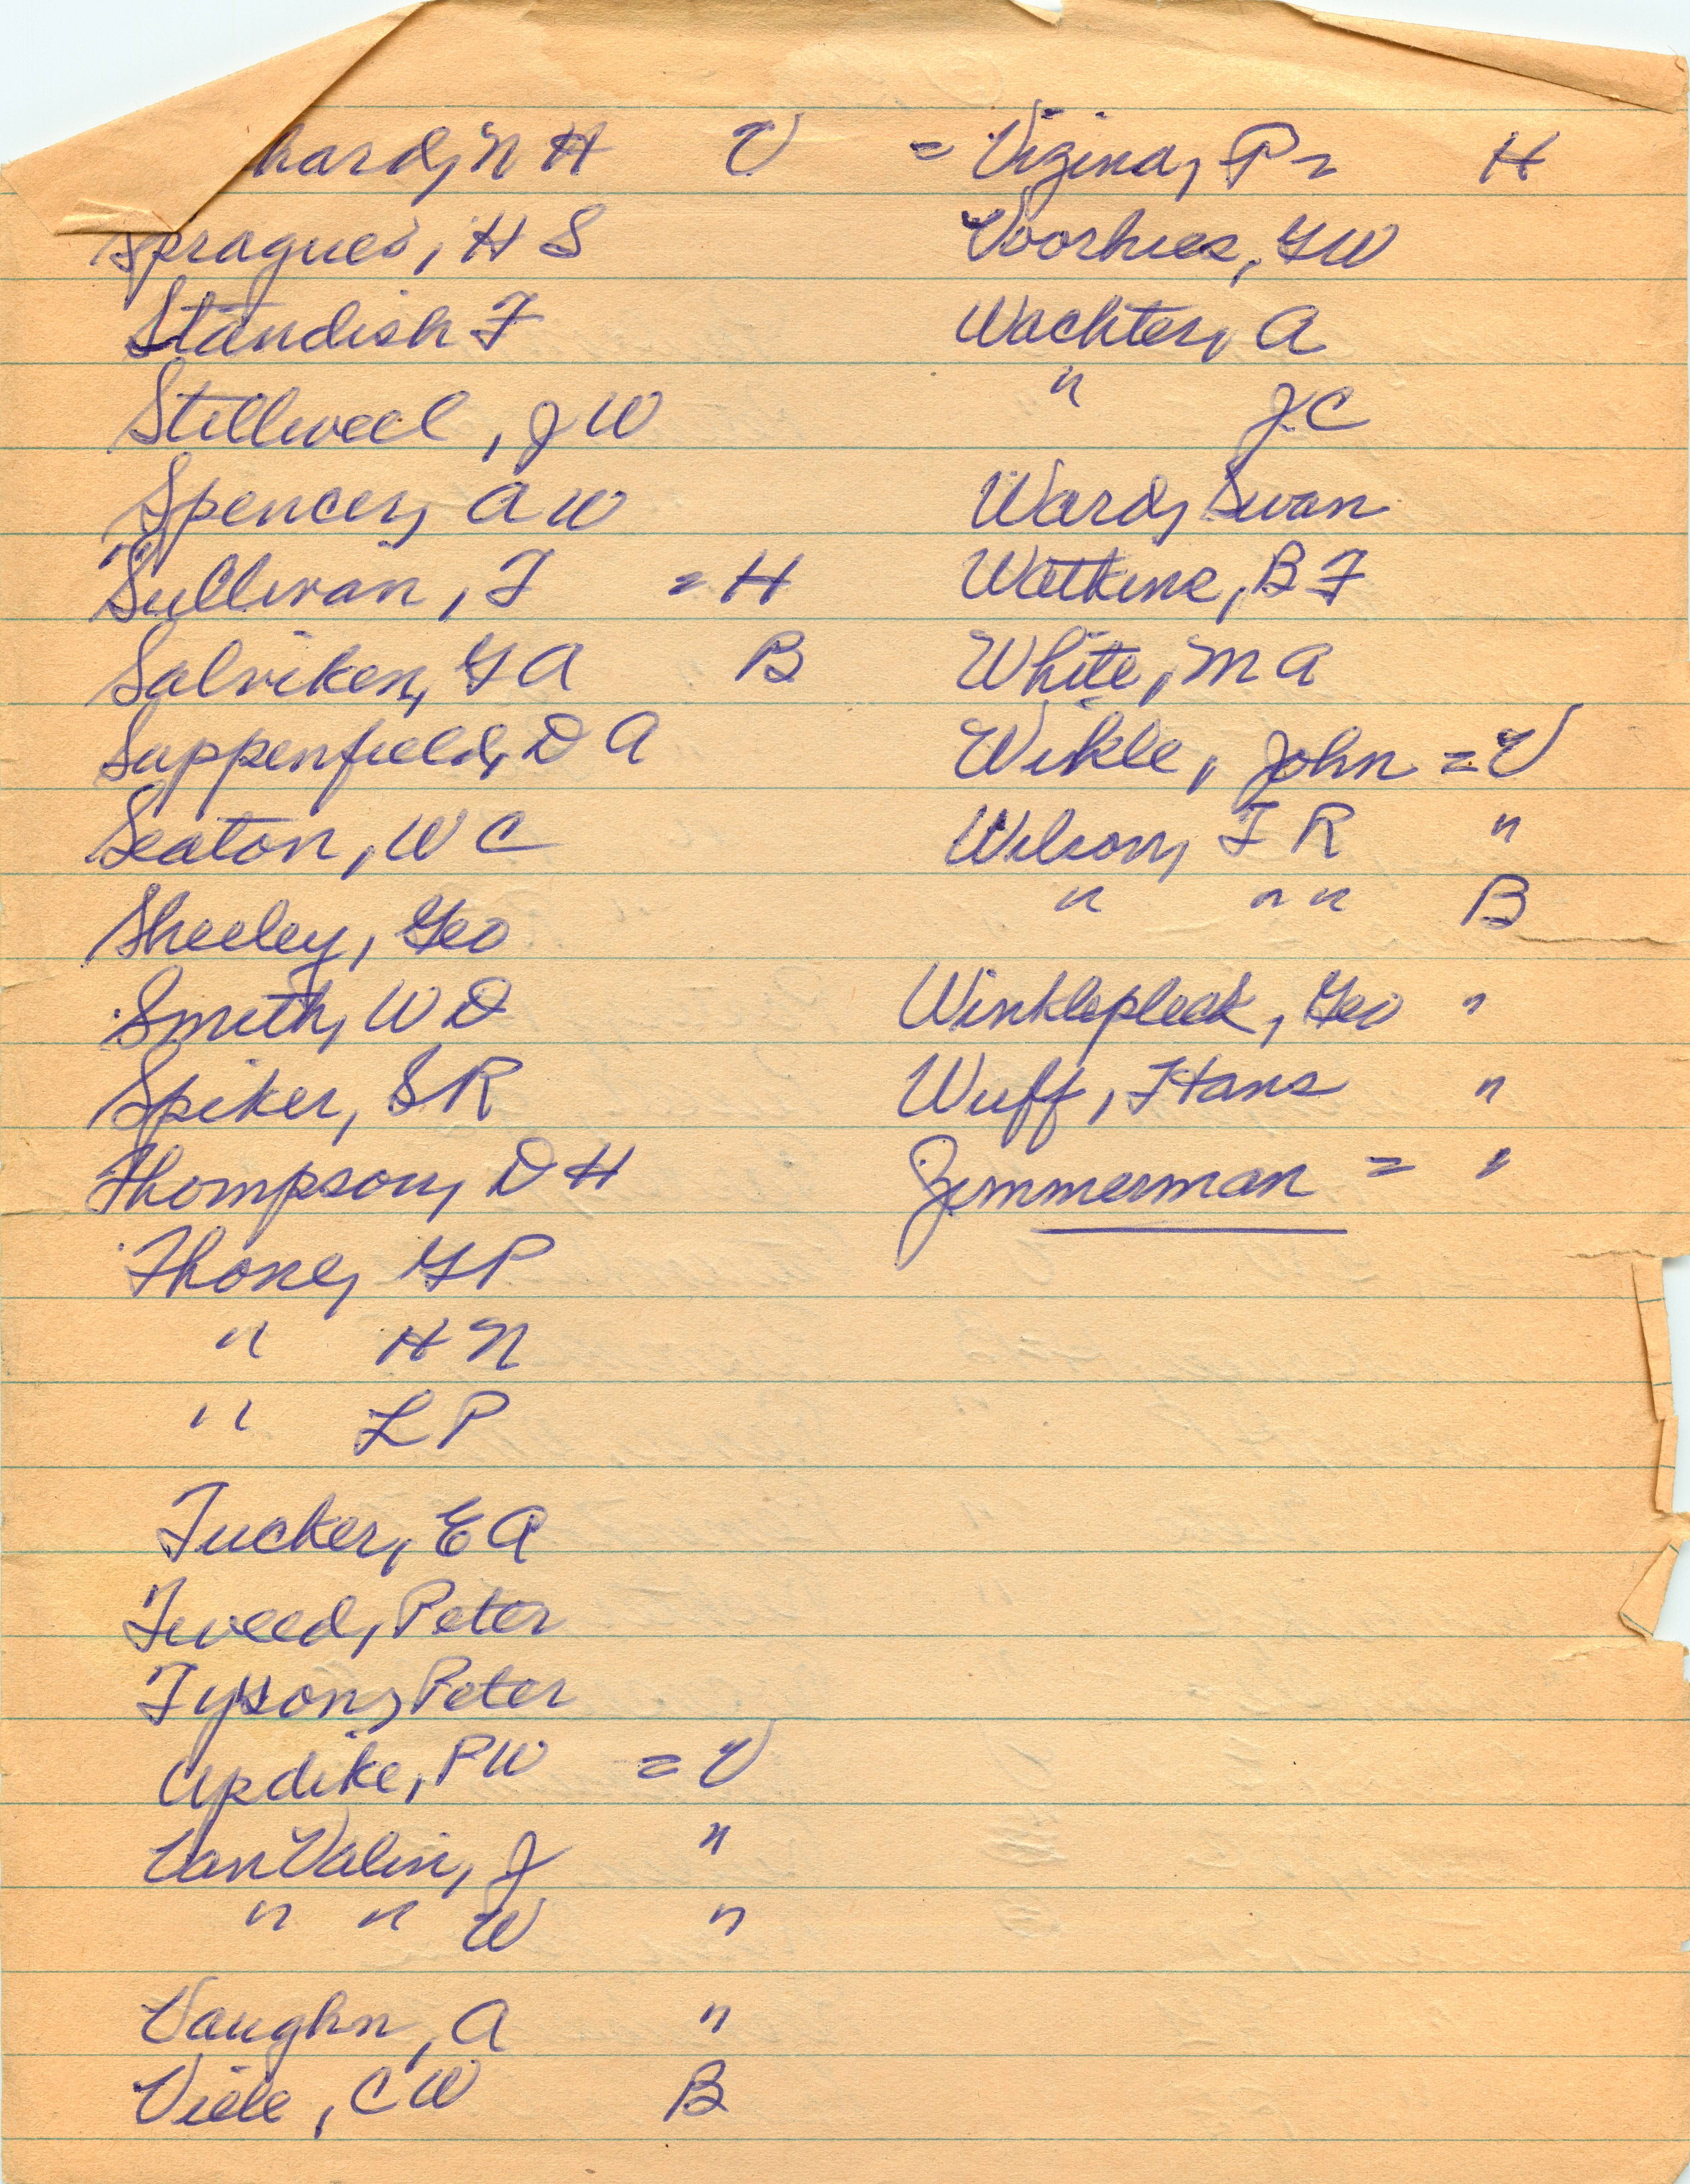 hard, N H V
Spragues, H S
Standish F
Stillwell, J W
Spencer, A W
Sullivan, J = H
Salviken, G A B
Suppenfield, D A
Seaton, W C
Sheeley, Geo
Smith, W D
Spiker, S R
Thompson, D H
Thone, G P
" H N
" L P
Tucker, E A
Tweed, Peter
Tyson, Peter
Updike, P W = V
Van Valin, J "
" " W "
Vaughn, A "
Viele, C W B
= Vizina, P H
Voorhies, G W
Wachter, A
" J C
Ward, Swan
Watkins, B F
White, M A
Wikle, John = V
Wilson, F R "
" " " B
Winklepleck, Geo "
Wuff, Hans "
Zimmerman = "